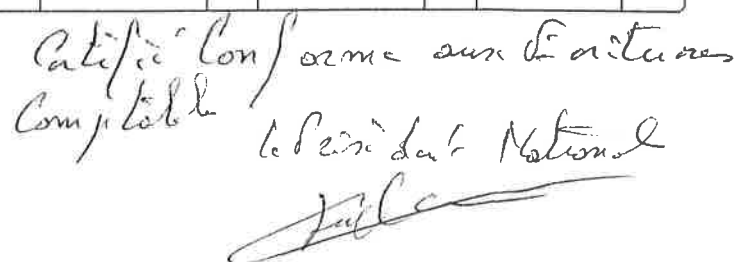 Certifié Conforme aux Écritures
Comptable
le Président National